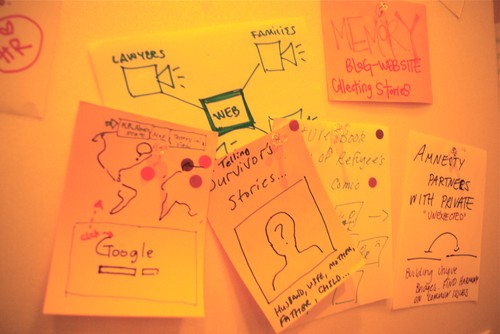 HR
LAWYERS
FAMILIES
WEB
MEMORY
BLOG-WEBSITE
Collecting Stories
Google
Telling
Survivors
Stories...
HUSBAND, WIFE, MOTHER,
FATHER, CHILD...
Book
of Refugees
Comic
AMNESTY
PARTNERS
WITH PRIVATE
"UNEXPECTED"
Building Unique
Bridges. FIND
ON "COMMON"